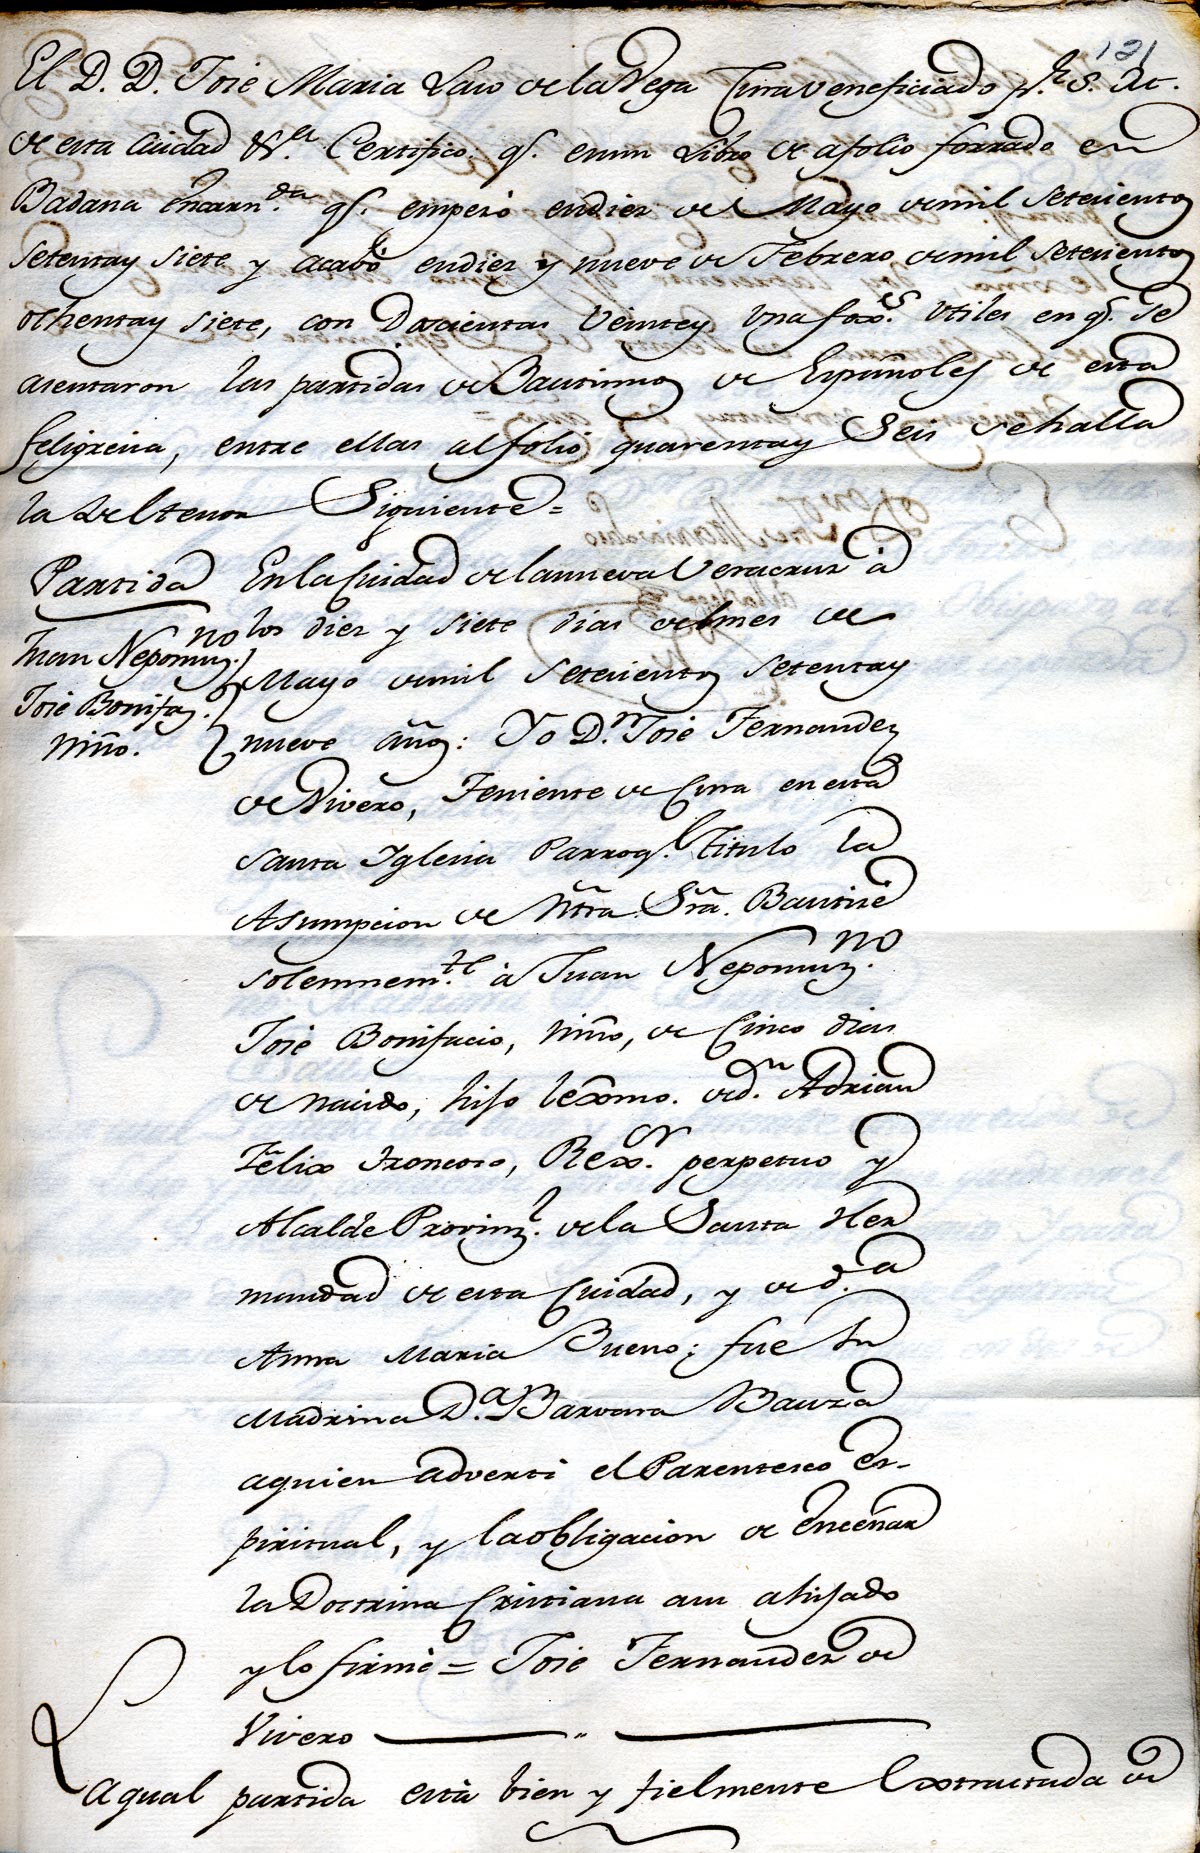 121
El D. D. Jose Maria Laso de la Vega Cura Veneficiado pr. S. M.
de esta Ciudad &.a Certifico: q.e en un Libro de afolio forrado en
Badana encarn.da q.e empesó en dies de Mayo de mil Setecientos
Setentay siete y acavó en dies y nueve de Febrero, de mil Setecientos
ochentay siete, con Doscientas Veintey Una fox.s Utiles en q.e se
asentaron las partidas de Bautismos de Españoles de esta
feligresia, entre ellas al folio quarentay Seis se halla
la del tenor Siguiente =
Partida En la Ciudad de la nueva Veracruz à
Juan Nepomuz.no los dies y siete dias del mes de
Jose Bonifaz.o Mayo de mil Setecientos Setentay
niño. nueve años: Yo D.n Jose Fernandez
de Vivero, Teniente de Cura en esta
Santa Iglesia Parroq.l Titulo la
Asumpcion de Ntra. Sra. Bautisé
solemnem.te à Juan Nepomuz.no
Jose Bonifacio, niño, de Cinco dias
de nacido, hijo lexmo. de d.n Adrian
Felix Troncoso, Rex.or perpetuo y
Alcalde Provinz.l de la Santa Her
mandad de esta Ciudad, y de d.a
Anna Maria Bueno; fue su
Madrina D.a Barvara Bauza
aquien adverti el Parentesco es-
piritual, y la obligacion de Enceñar
la Doctrina Cristiana asu ahijado
y lo firmé = Jose Fernandez de
Vivero
La qual partida está bien y fielmente Extractada de